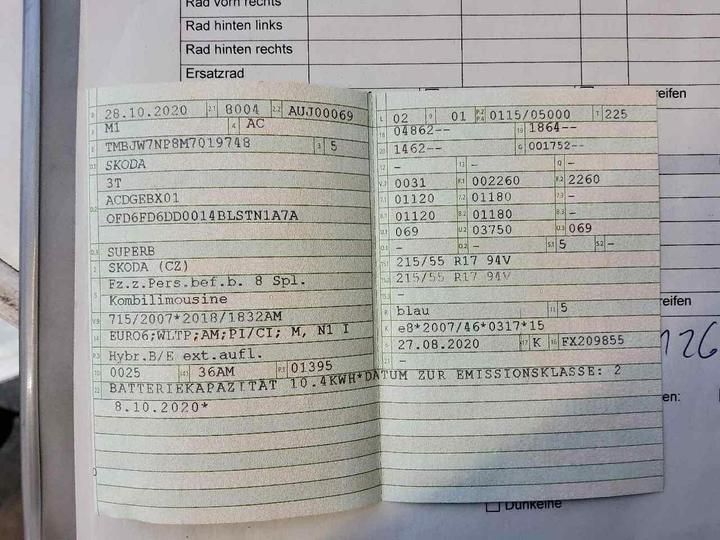 Rad vorn rechts
Rad hinten links
Rad hinten rechts
Ersatzrad
reifen
B 28.10.2020 2.1 8004 2.2 AUJ00069
J M1 4 AC
E TMBJW7NP8M7019748 3 5
D.1 SKODA
3T
D.2 ACDGEBX01
OFD6FD6DD0014BLSTN1A7A
D.3 SUPERB
2 SKODA (CZ)
5 Fz.z.Pers.bef.b. 8 Spl.
Kombilimousine
V.9 715/2007*2018/1832AM
14 EURO6;WLTP;AM;PI/CI; M, N1 I
P.3 Hybr.B/E ext.aufl.
10 0025 14.1 36AM P.1 01395
22 BATTERIEKAPAZITÄT 10.4KWH*DATUM ZUR EMISSIONSKLASSE: 2
8.10.2020*
L 02 9 01 P.2 P.4 0115/05000 T 225
18 04862-- 19 1864--
20 1462-- G 001752--
12 - 13 - Q -
V.7 0031 F.1 002260 F.2 2260
7.1 01120 7.2 01180 7.3 -
8.1 01120 8.2 01180 8.3 -
U.1 069 U.2 03750 U.3 069
O.1 - O.2 - S.1 5 S.2 -
15.1 215/55 R17 94V
15.2 215/55 R17 94V
15.3 -
R blau 11 5
K e8*2007/46*0317*15
6 27.08.2020 17 K 16 FX209855
21 -
reifen
126
en:
Dunkelhe